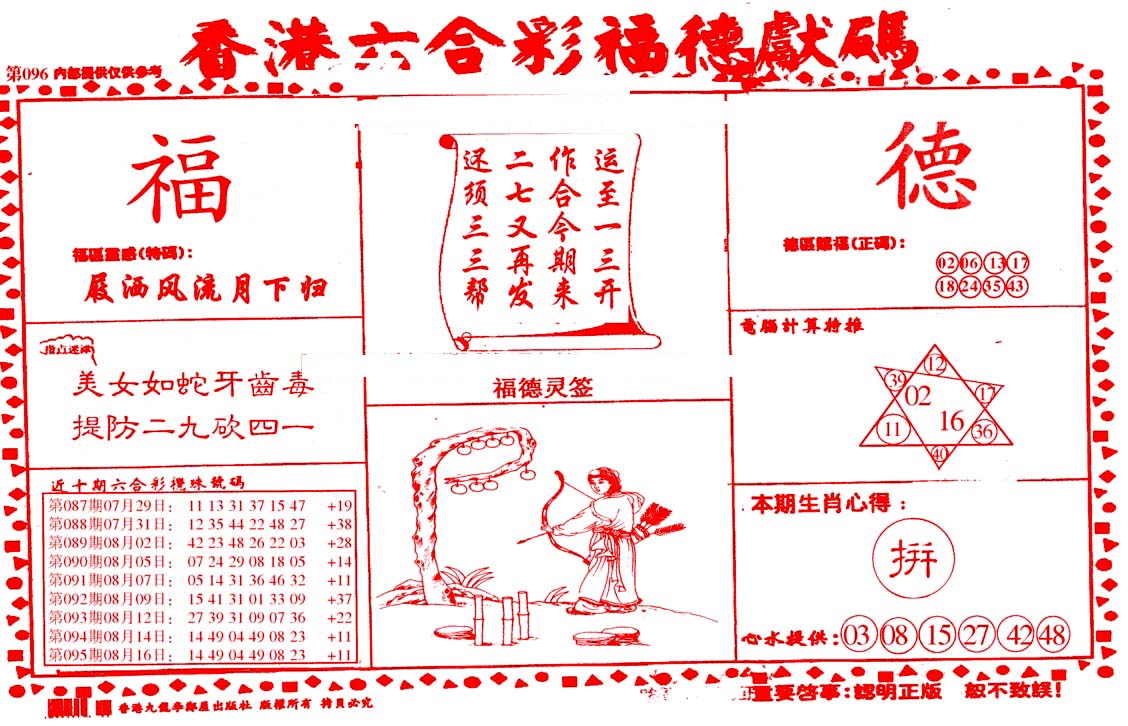 香港六合彩福德獻碼
第096 内部提供仅供参考
福
福區靈感(特碼):
屐洒风流月下归
指点迷津
美女如蛇牙齒毒
提防二九砍四一
近十期六合彩攪珠號碼
第087期07月29日: 11 13 31 37 15 47 +19
第088期07月31日: 12 35 44 22 48 27 +38
第089期08月02日: 42 23 48 26 22 03 +28
第090期08月05日: 07 24 29 08 18 05 +14
第091期08月07日: 05 14 31 36 46 32 +11
第092期08月09日: 15 41 31 01 33 09 +37
第093期08月12日: 27 39 31 09 07 36 +22
第094期08月14日: 14 49 04 49 08 23 +11
第095期08月16日: 14 49 04 49 08 23 +11
运至一三开
作合今期来
二七又再发
还须三三帮
福德灵签
德
德區賜福(正碼):
02 06 13 17
18 24 35 43
電腦計算特推
12
39 02 17
11 16 36
40
本期生肖心得:
拼
心水提供: 03 08 15 27 42 48
香港九龍李鄭屋出版社 版權所有 拷貝必究
重要啓事:認明正版 恕不致誤!